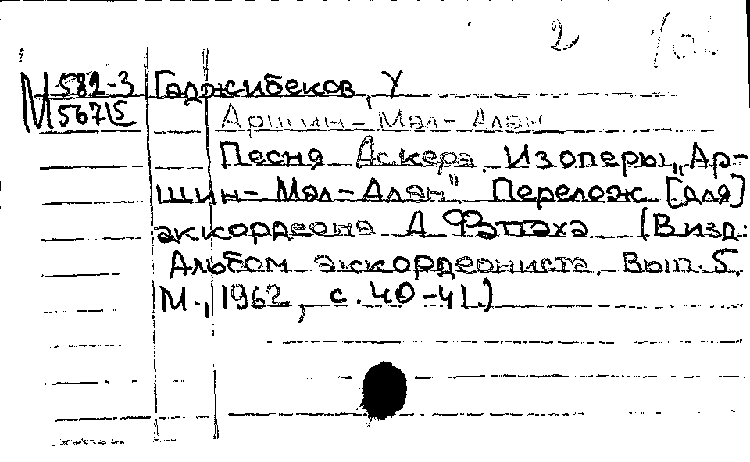 2
М 582-3 Гаджибеков, У
56715 Аршин-Мал-Алан
Песня Аскера. Из оперы „Ар-
шин-Мал-Алан". Перелож. [для]
аккордеона А. Фаттаха (В изд.:
Альбом аккордеониста. Вып. 5.
М., 1962, с. 40-41.)